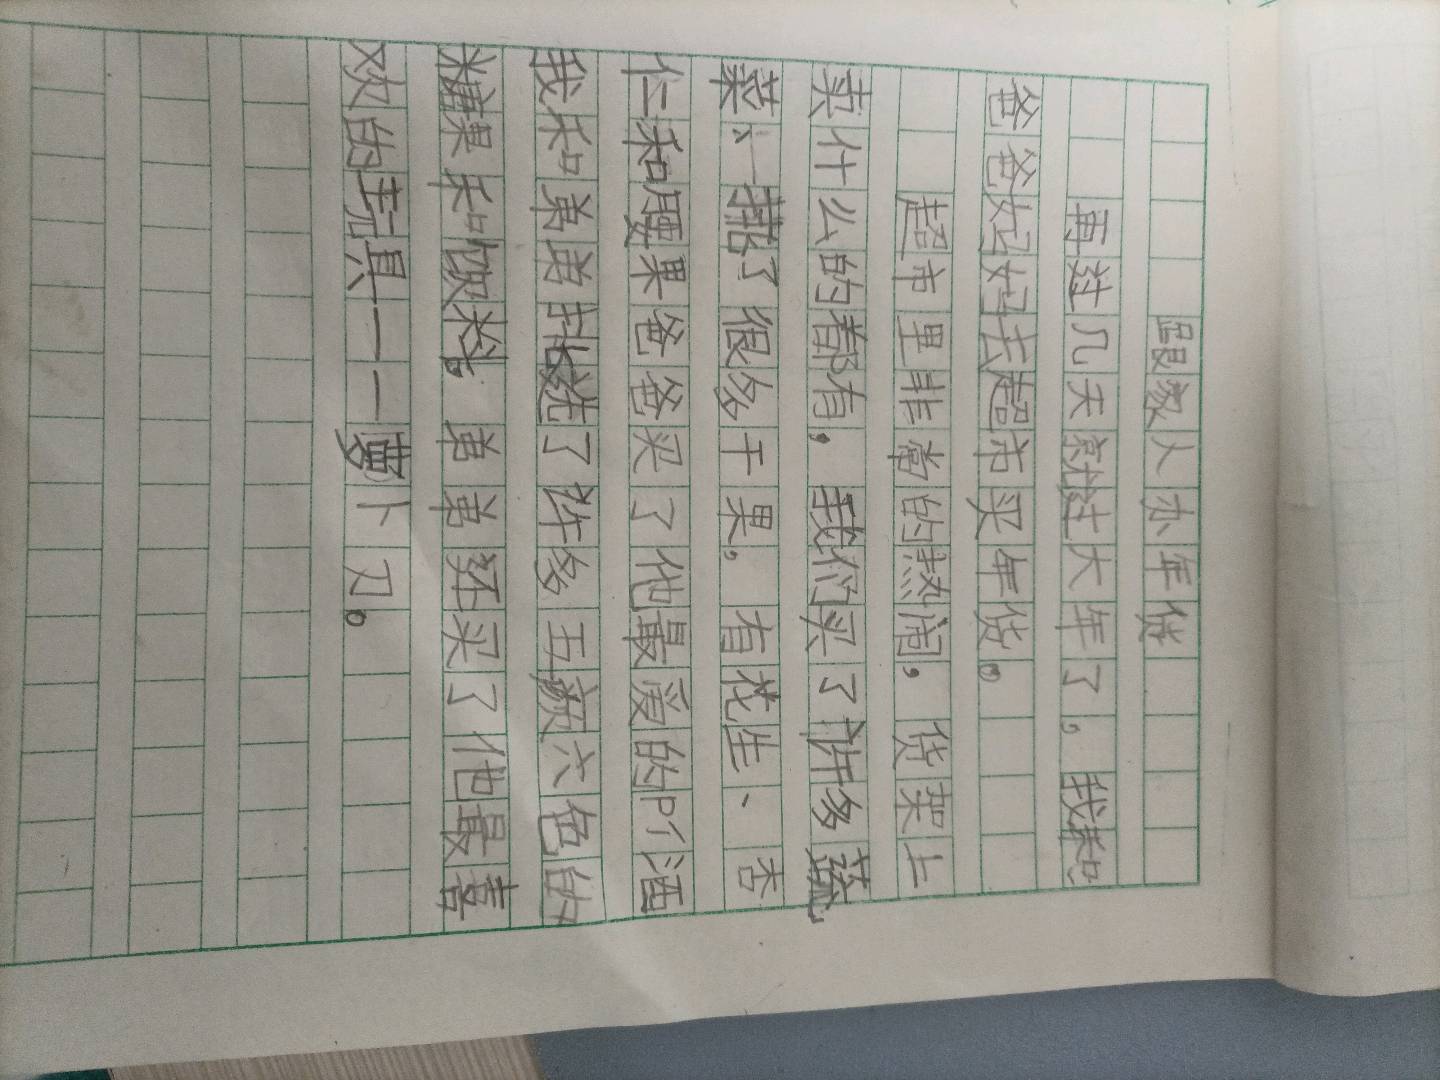 跟家人办年货
再过几天就过大年了，我和
爸爸妈妈去超市买年货。
超市里非常的热闹，货架上
卖什么的都有，我们买了许多蔬
菜、一排了很多干果。有花生、杏
仁和腰果爸爸买了他最爱的啤酒
我和弟弟挑选了许多五颜六色的
糖果和饮料。弟弟还买了他最喜
欢的玩具——萝卜刀。